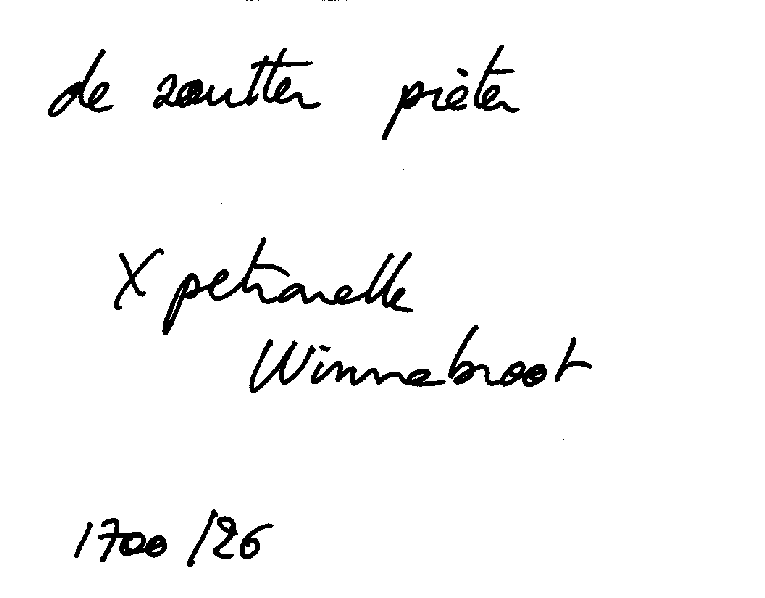 de zoutter pieter
X petronelle
Winnebroot
1700/26